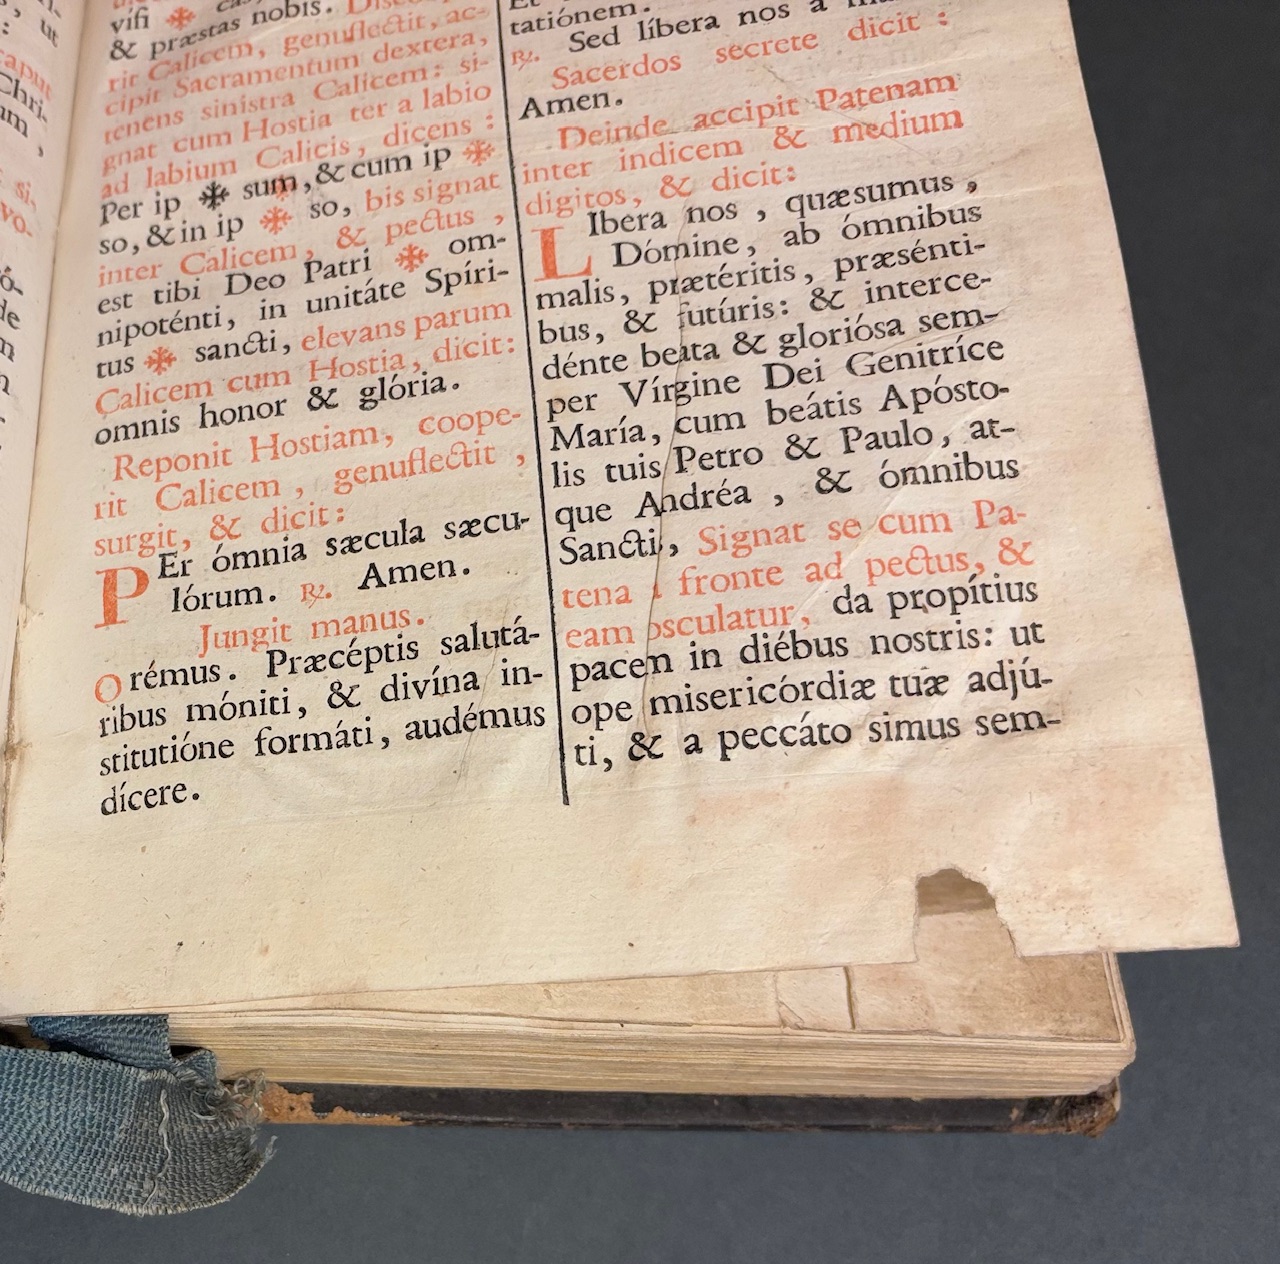 ut
Chri-
vifi ✱
& præstas nobis.
rit Calicem, genuflectit, ac-
cipit Sacramentum dextera,
tenens sinistra Calicem: si-
gnat cum Hostia ter a labio
ad labium Calicis, dicens:
Per ip ✱ sum, & cum ip ✱
so, & in ip ✱ so, bis signat
inter Calicem, & pectus,
est tibi Deo Patri ✱ om-
nipoténti, in unitáte Spíri-
tus ✱ sancti, elevans parum
Calicem cum Hostia, dicit:
omnis honor & glória.
Reponit Hostiam, coope-
rit Calicem, genuflectit,
surgit, & dicit:
PEr ómnia sæcula sæcu-
lórum. ℟. Amen.
Jungit manus.
Orémus. Præcéptis salutá-
ribus móniti, & divína in-
stitutióne formáti, audémus
dícere.
tatiónem.
℟. Sed líbera nos a
Sacerdos secrete dicit:
Amen.
Deinde accipit Patenam
inter indicem & medium
digitos, & dicit:
LIbera nos, quæsumus,
Dómine, ab ómnibus
malis, prætéritis, præsénti-
bus, & futúris: & interce-
dénte beata & gloriósa sem-
per Vírgine Dei Genitríce
María, cum beátis Apósto-
lis tuis Petro & Paulo, at-
que Andréa, & ómnibus
Sancti, Signat se cum Pa-
tena a fronte ad pectus, &
eam osculatur, da propítius
pacem in diébus nostris: ut
ope misericórdiæ tuæ adjú-
ti, & a peccáto simus sem-